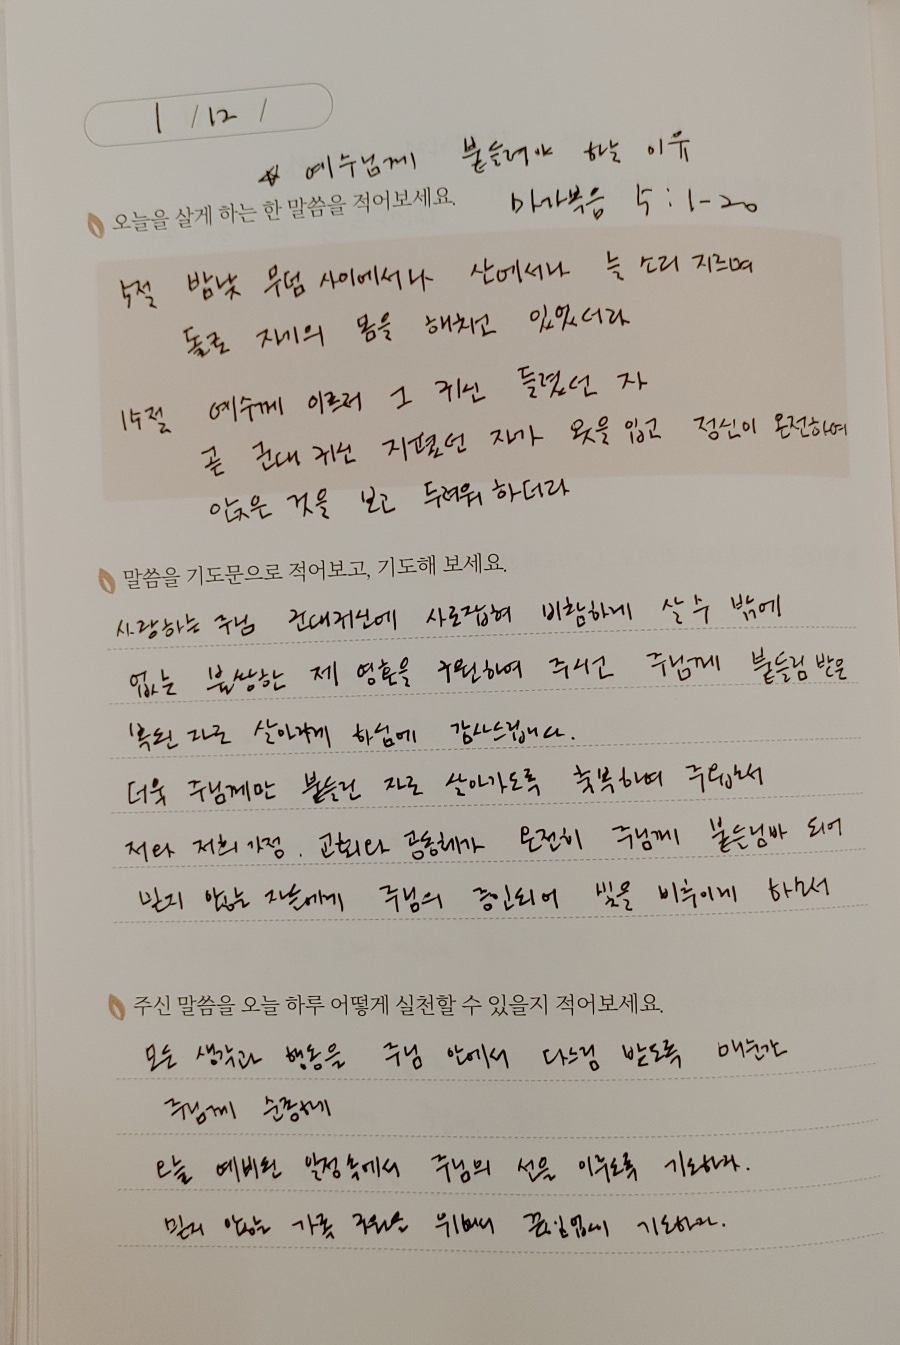 1 / 12 /
☆ 예수님께 붙들려야 하는 이유
오늘을 살게 하는 한 말씀을 적어보세요. 마가복음 5 : 1-20
5절 밤낮 무덤 사이에서나 산에서나 늘 소리 지르며
돌로 자기의 몸을 해치고 있었더라
15절 예수께 이르러 그 귀신 들렸던 자
곧 군대 귀신 지폈던 자가 옷을 입고 정신이 온전하여
앉은 것을 보고 두려워 하더라
말씀을 기도문으로 적어보고, 기도해 보세요.
사랑하는 주님 군대귀신에 사로잡혀 비참하게 살 수 밖에
없는 불쌍한 제 영혼을 구원하여 주시고 주님께 붙들림 받은
복된 자로 살아가게 하심에 감사드립니다.
더욱 주님께만 붙들린 자로 살아가도록 축복하여 주옵소서
저와 저희 가정, 교회와 공동체가 온전히 주님께 붙든바 되어
믿지 않는 자들에게 주님의 증인되어 빛을 비추이게 하소서
주신 말씀을 오늘 하루 어떻게 실천할 수 있을지 적어보세요.
모든 생각과 행동을 주님 안에서 다스림 받도록 매순간
주님께 순종하게
오늘 예비된 일정속에서 주님의 선을 이루도록 기도하자.
믿지 않는 가족 구원을 위하여 끊임없이 기도하자.